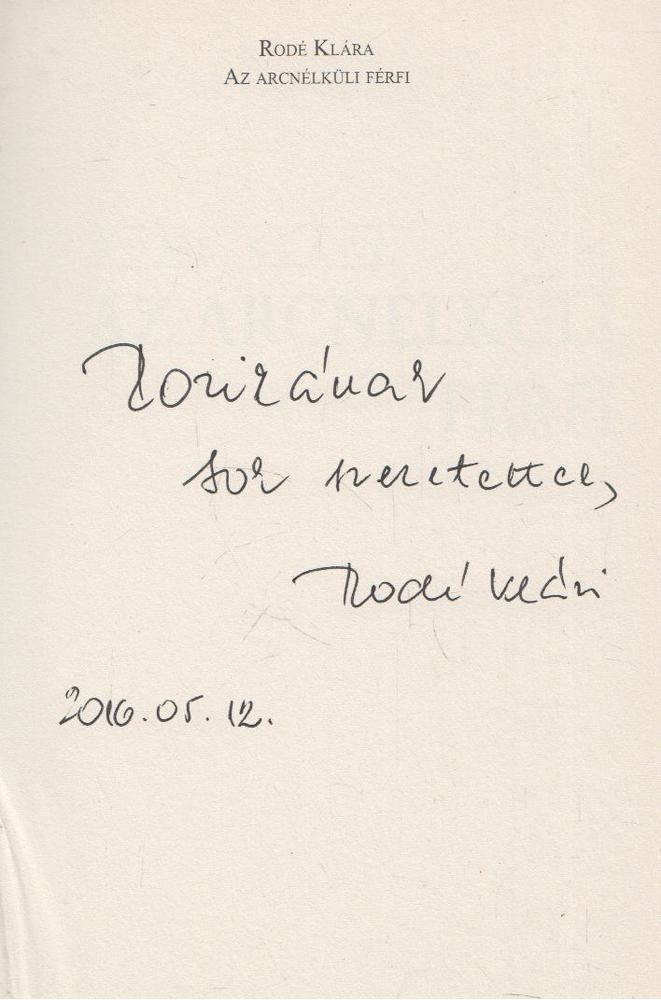 RODÉ KLÁRA
AZ ARCNÉLKÜLI FÉRFI
AZ ARCNÉLKÜLI
FÉRFI
sok szeretettel,
Rodé Klári
2016.05.12.